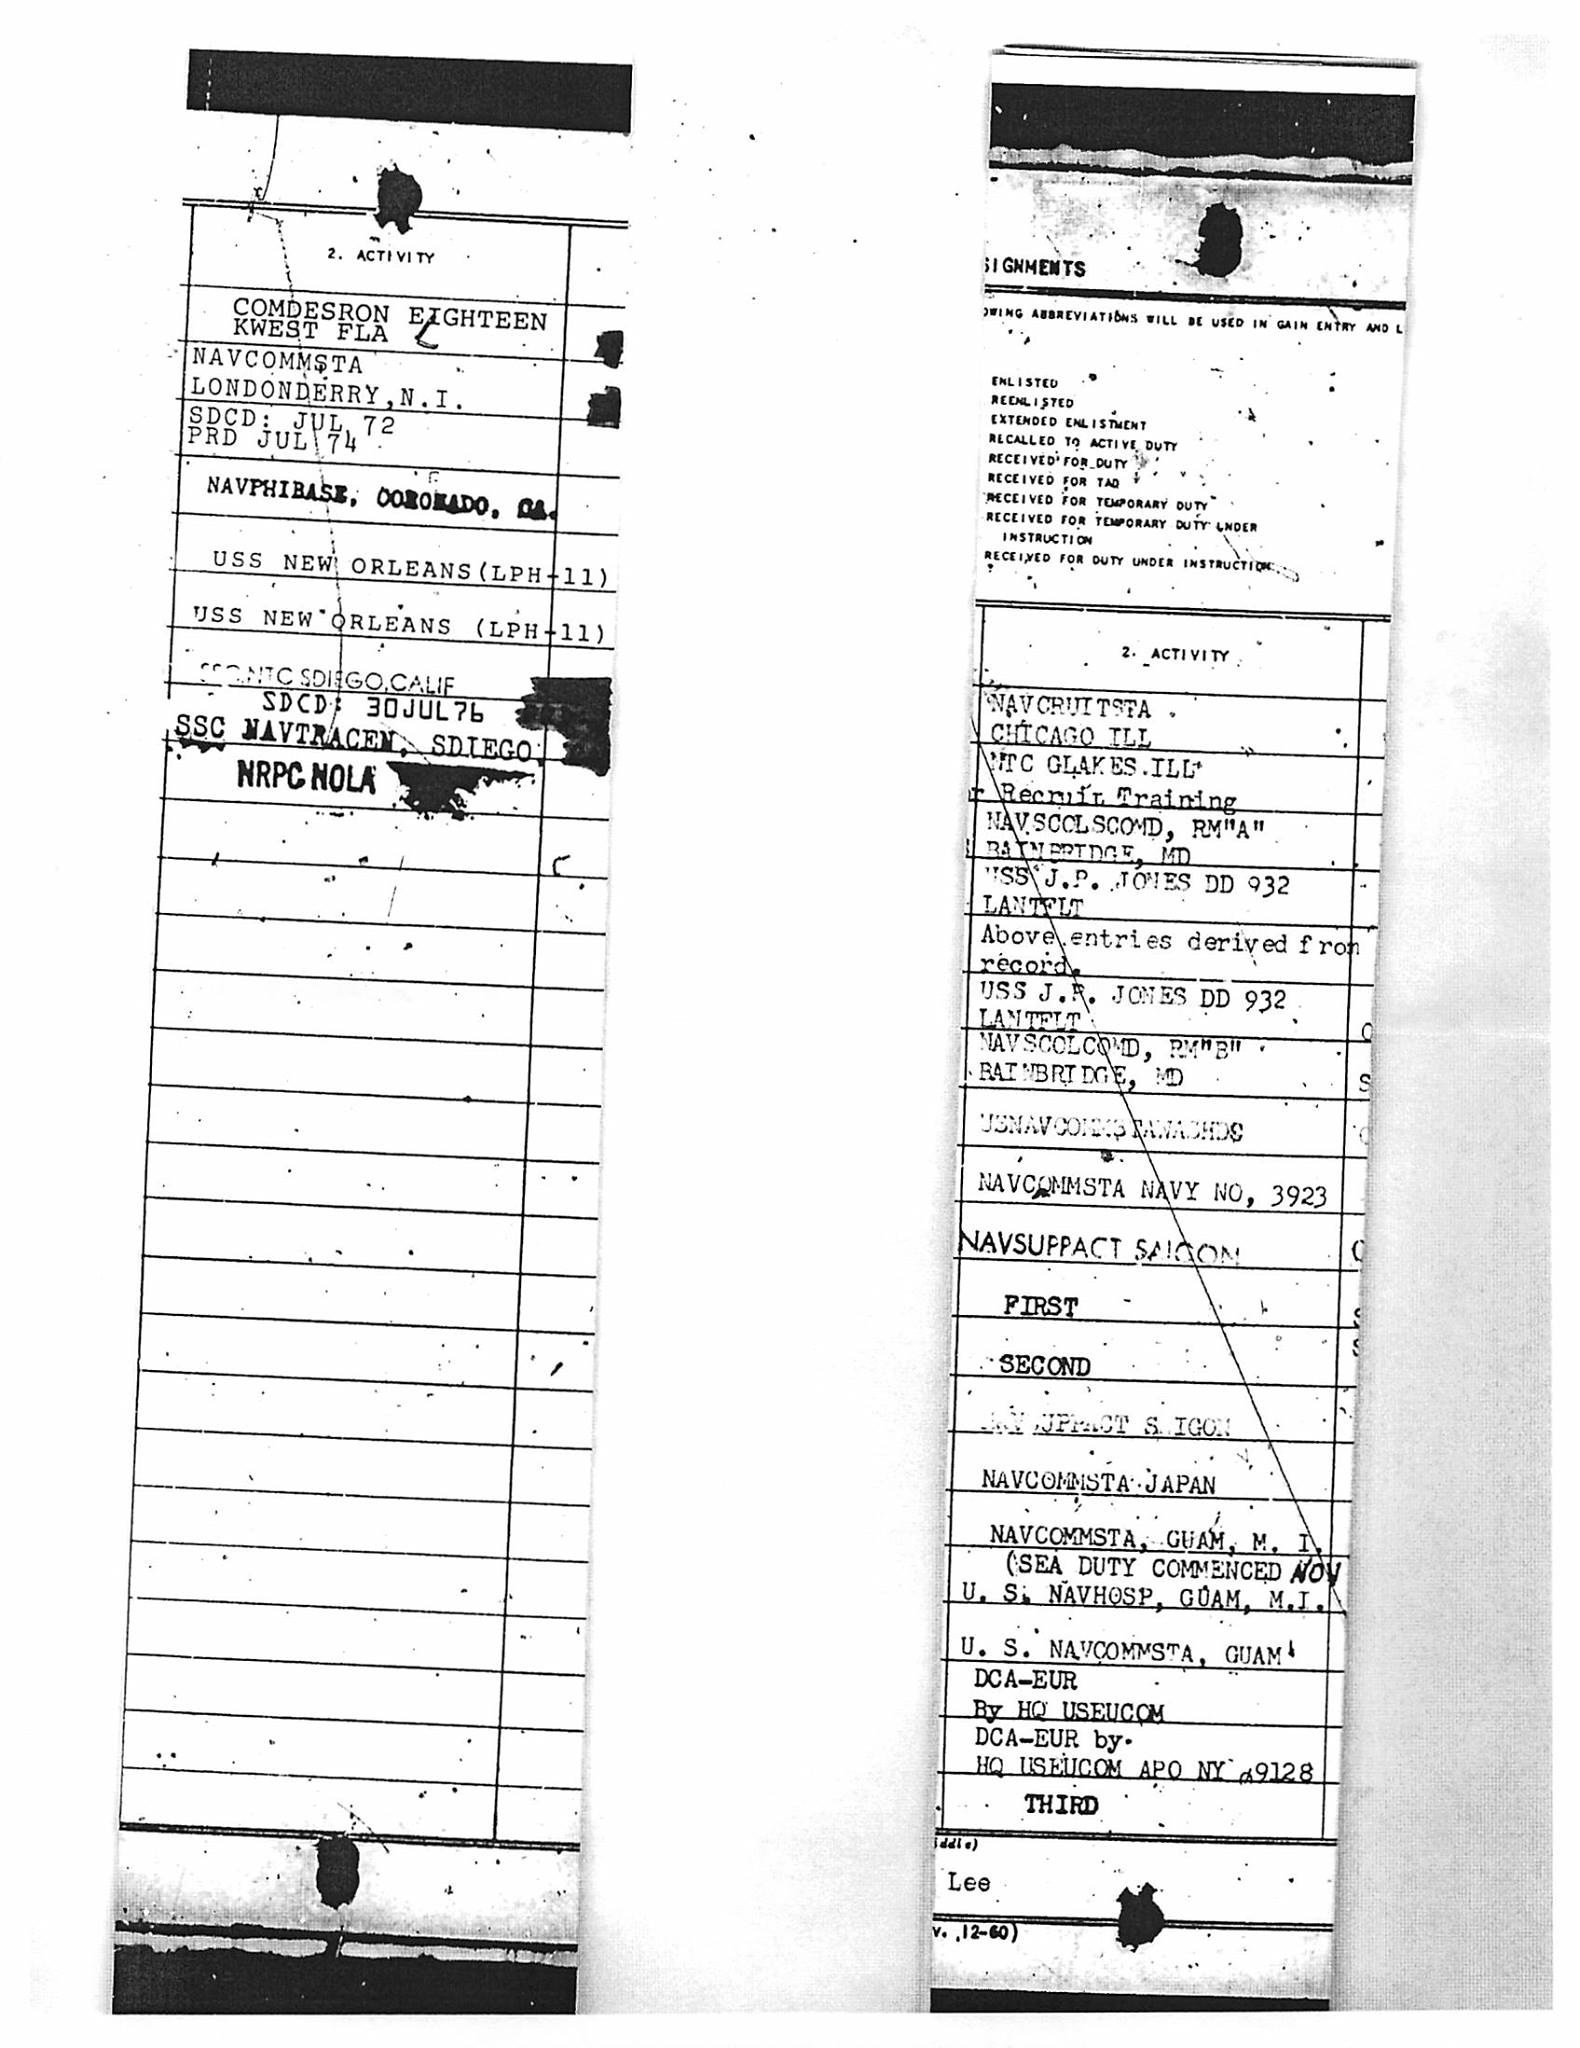 2. ACTIVITY
COMDESRON EIGHTEEN
KWEST FLA
NAVCOMMSTA
LONDONDERRY, N.I.
SDCD: JUL 72
PRD JUL 74
NAVPHIBASE, CORONADO, CA.
USS NEW ORLEANS(LPH-11)
USS NEW ORLEANS (LPH-11)
SSC,NTC SDIEGO,CALIF
SDCD: 30JUL76
SSC NAVTRACEN, SDIEGO
NRPC NOLA
SIGNMENTS
OWING ABBREVIATIONS WILL BE USED IN GAIN ENTRY AND L
ENLISTED
REENLISTED
EXTENDED ENLISTMENT
RECALLED TO ACTIVE DUTY
RECEIVED FOR DUTY
RECEIVED FOR TAD
RECEIVED FOR TEMPORARY DUTY
RECEIVED FOR TEMPORARY DUTY UNDER
INSTRUCTION
RECEIVED FOR DUTY UNDER INSTRUCTION
2. ACTIVITY
NAVCRUITSTA
CHICAGO ILL
NTC GLAKES ILL
r Recruit Training
NAVSCOLSCOMD, RM"A"
BAINBRIDGE, MD
USS J.P. JONES DD 932
LANTFLT
Above entries derived from
record.
USS J.P. JONES DD 932
LANTFLT
NAVSCOLCOMD, RM"B"
BAINBRIDGE, MD
USNAVCOMMSTAWASHDC
NAVCOMMSTA NAVY NO, 3923
NAVSUPPACT SAIGON
FIRST
SECOND
NAVSUPPACT SAIGON
NAVCOMMSTA JAPAN
NAVCOMMSTA, GUAM, M. I.
(SEA DUTY COMMENCED NOV
U. S. NAVHOSP, GUAM, M.I.
U. S. NAVCOMMSTA, GUAM
DCA-EUR
By HQ USEUCOM
DCA-EUR by
HQ USEUCOM APO NY 09128
THIRD
iddle)
Lee
v. 12-60)